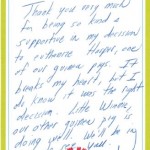 Thank you very much
for being so kind &
supportive in my decision
to euthanize Harper, one
of our guinea pigs. It
breaks my heart, but I
do know it was the right
decision. Little Winnie,
our other guinea pig is
doing well. We'll be in